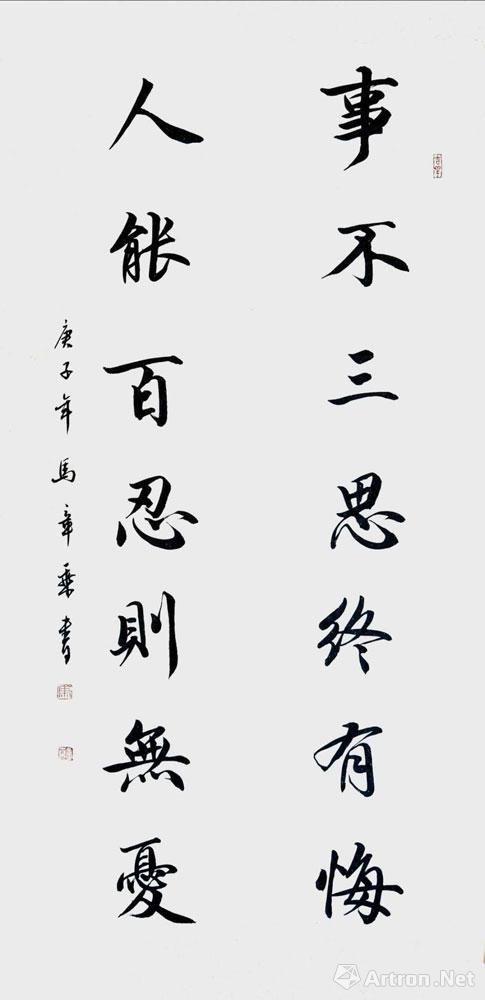 事不三思終有悔
人能百忍則無憂
庚子年馬章乘書
Artron.Net